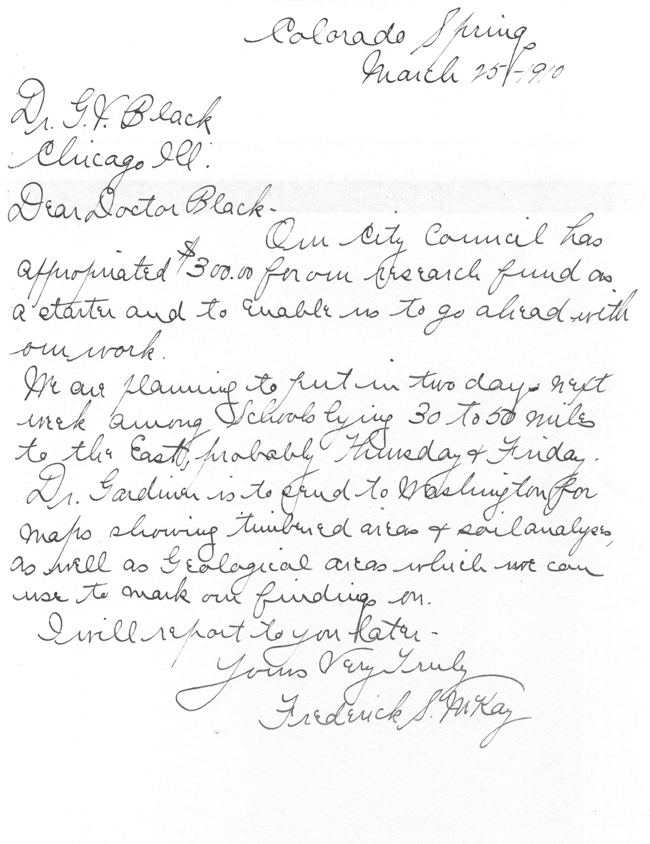 Colorado Springs
March 25-1910
Dr. G.V. Black
Chicago Ill.
Dear Doctor Black-
Our City Council has
appropriated $300.00 for our research fund as
a starter and to enable us to go ahead with
our work.
We are planning to put in two days next
week among schools lying 30 to 50 miles
to the East, probably Thursday & Friday.
Dr. Gardiner is to send to Washington for
maps showing timbered areas & soil analyses,
as well as Geological areas which we can
use to mark our findings on.
I will report to you later-
Yours Very Truly
Frederick S. McKay